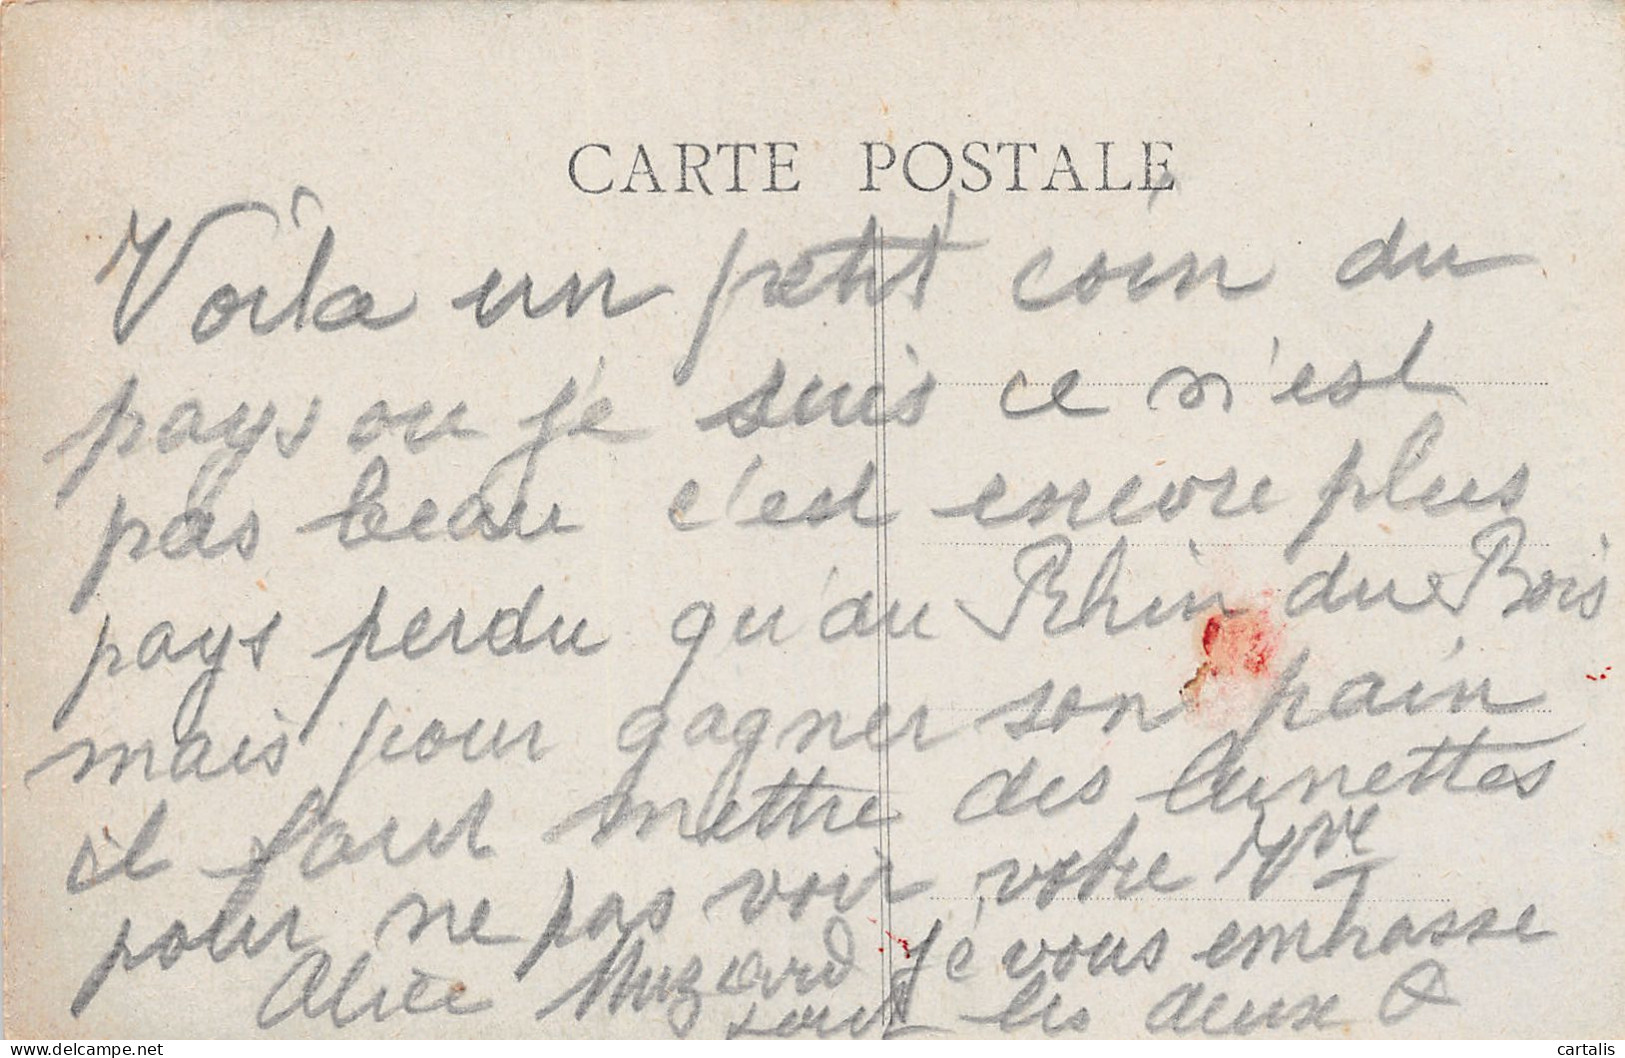 CARTE POSTALE
Voila un petit coin du
pays ou je suis ce n'est
pas beau c'est encore plus
pays perdu qu'au Rhin du Bois
mais pour gagner son pain
il faut mettre des lunettes
pour ne pas voir votre
Alice Muzard je vous embrasse
tout les deux
cartalis